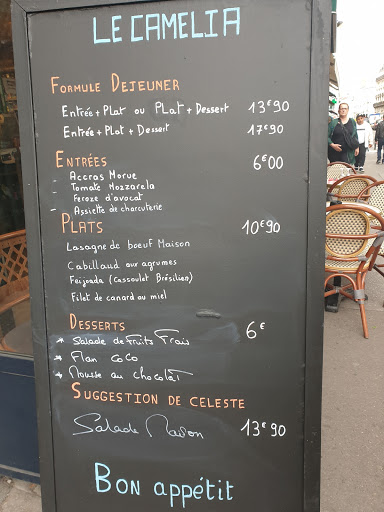 LE CAMELIA
FORMULE DEJEUNER
Entrée + Plat ou PLat + Dessert 13€90
Entrée + Plat + Dessert 17€90
ENTRÉES 6€00
- Accras Morue
- Tomate Mozzarela
- Feroze d'avocat
- Assiette de charcuterie
PLATS 10€90
Lasagne de boeuf Maison
Cabillaud aux agrumes
Feijoada (Cassoulet Brésilien)
Filet de canard au miel
DESSERTS 6€
* Salade de Fruits Frais
* Flan coco
* Mousse au chocolat
SUGGESTION DE CELESTE
Salade Maison 13€90
BON appétit